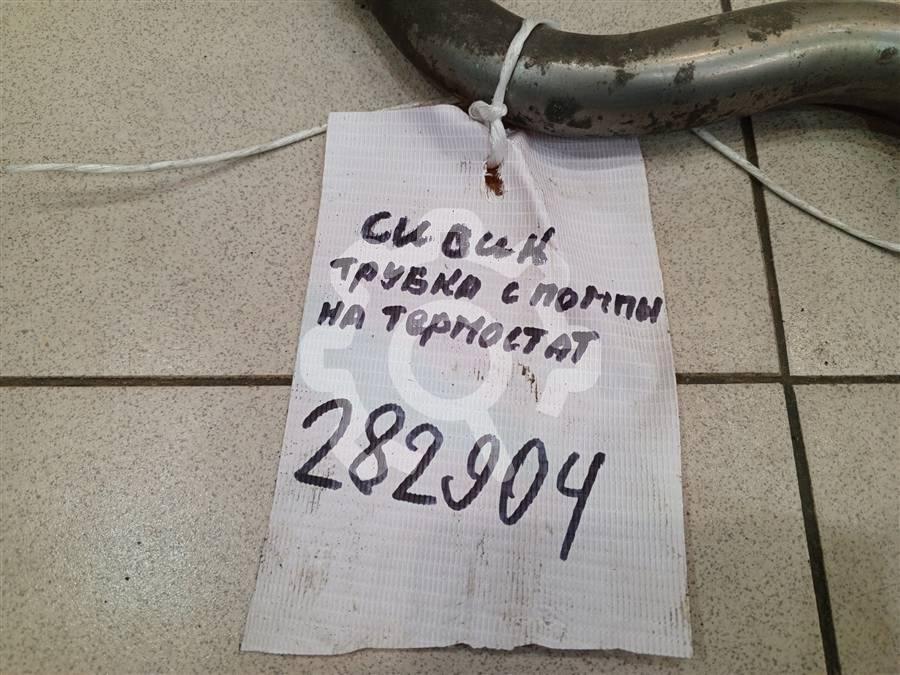 СИВИК
ТРУБКА С ПОМПЫ
НА ТЕРМОСТАТ
282904